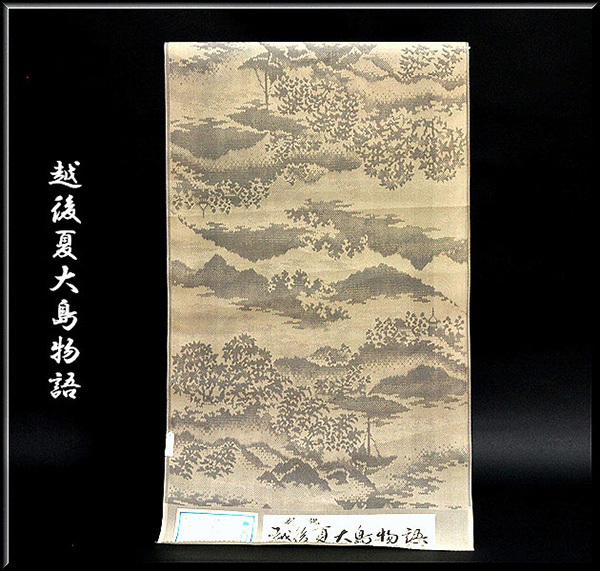 越後夏大島物語
越後夏大島物語